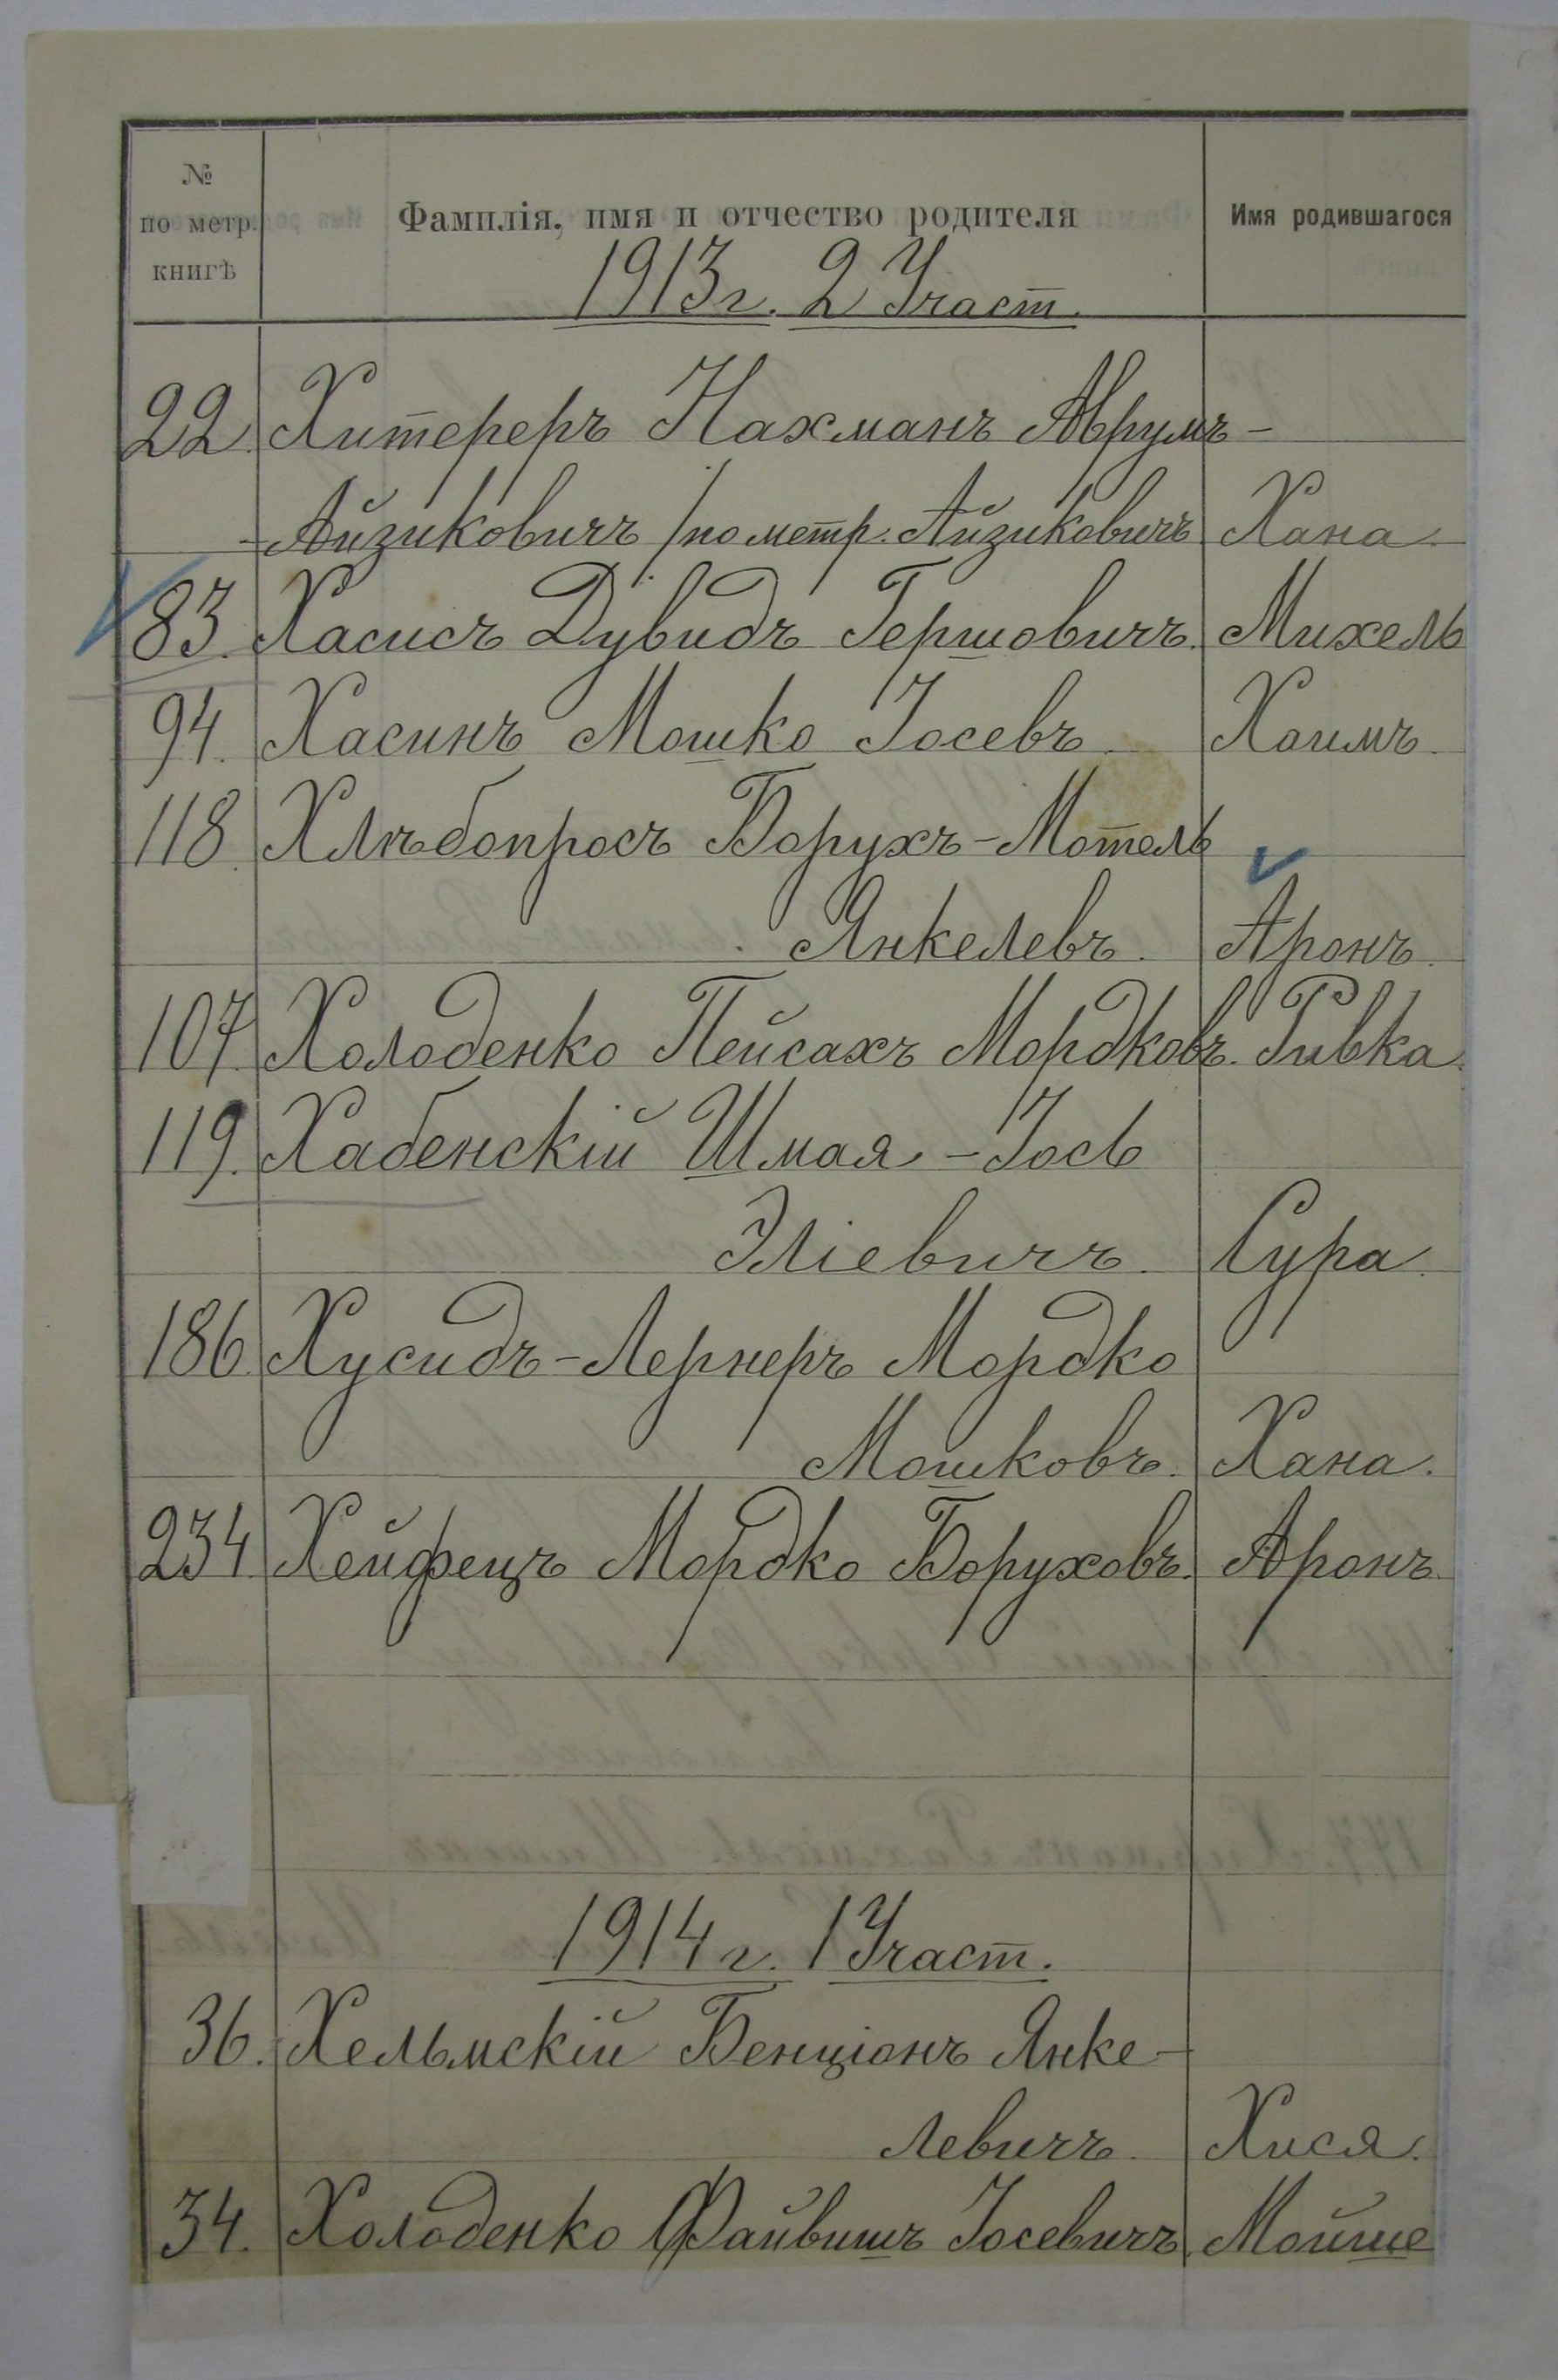 № по метр. книгѣ Фамилія, имя и отчество родителя Имя родившагося
1913 г. 2 Участ.
22. Хитереръ Нахманъ Аврумъ-
-Айзиковичъ /по метр. Айзиковичъ Хана.
83. Хасисъ Дувидъ Гершовичъ. Михель
94. Хасинъ Мошко Іосевъ. Хаимъ.
118. Хлѣбопросъ Борухъ-Мотель
Янкелевъ. Аронъ.
107. Холоденко Пейсахъ Мордковъ. Ривка.
119. Хабенскій Шмая-Іось
Эліевичъ. Сура.
186. Хусидъ-Лернеръ Мордко
Мошковъ. Хана.
234. Хейфецъ Мордко Боруховъ. Аронъ.
1914 г. 1 Участ.
36. Хельмскій Бенціонъ Янке-
левичъ. Хися.
34. Холоденко Файвишъ Іосевичъ. Мойше